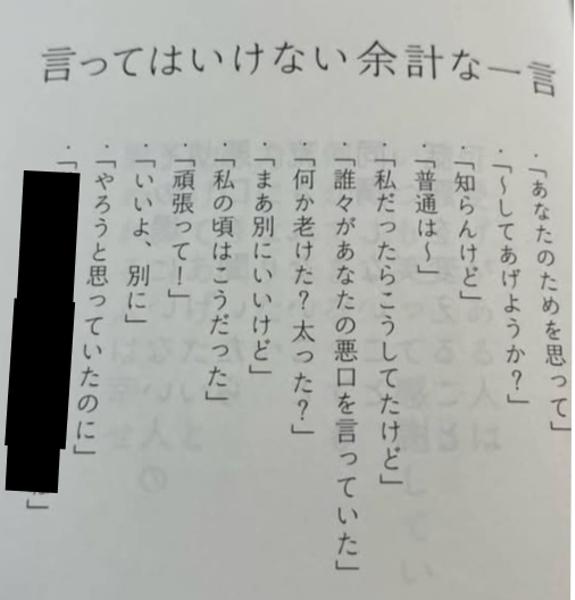 言ってはいけない余計な一言
・「あなたのためを思って」
・「〜してあげようか？」
・「知らんけど」
・「普通は〜」
・「私だったらこうしてたけど」
・「誰々があなたの悪口を言っていた」
・「何か老けた？太った？」
・「まあ別にいいけど」
・「私の頃はこうだった」
・「頑張って！」
・「いいよ、別に」
・「やろうと思っていたのに」
・「」